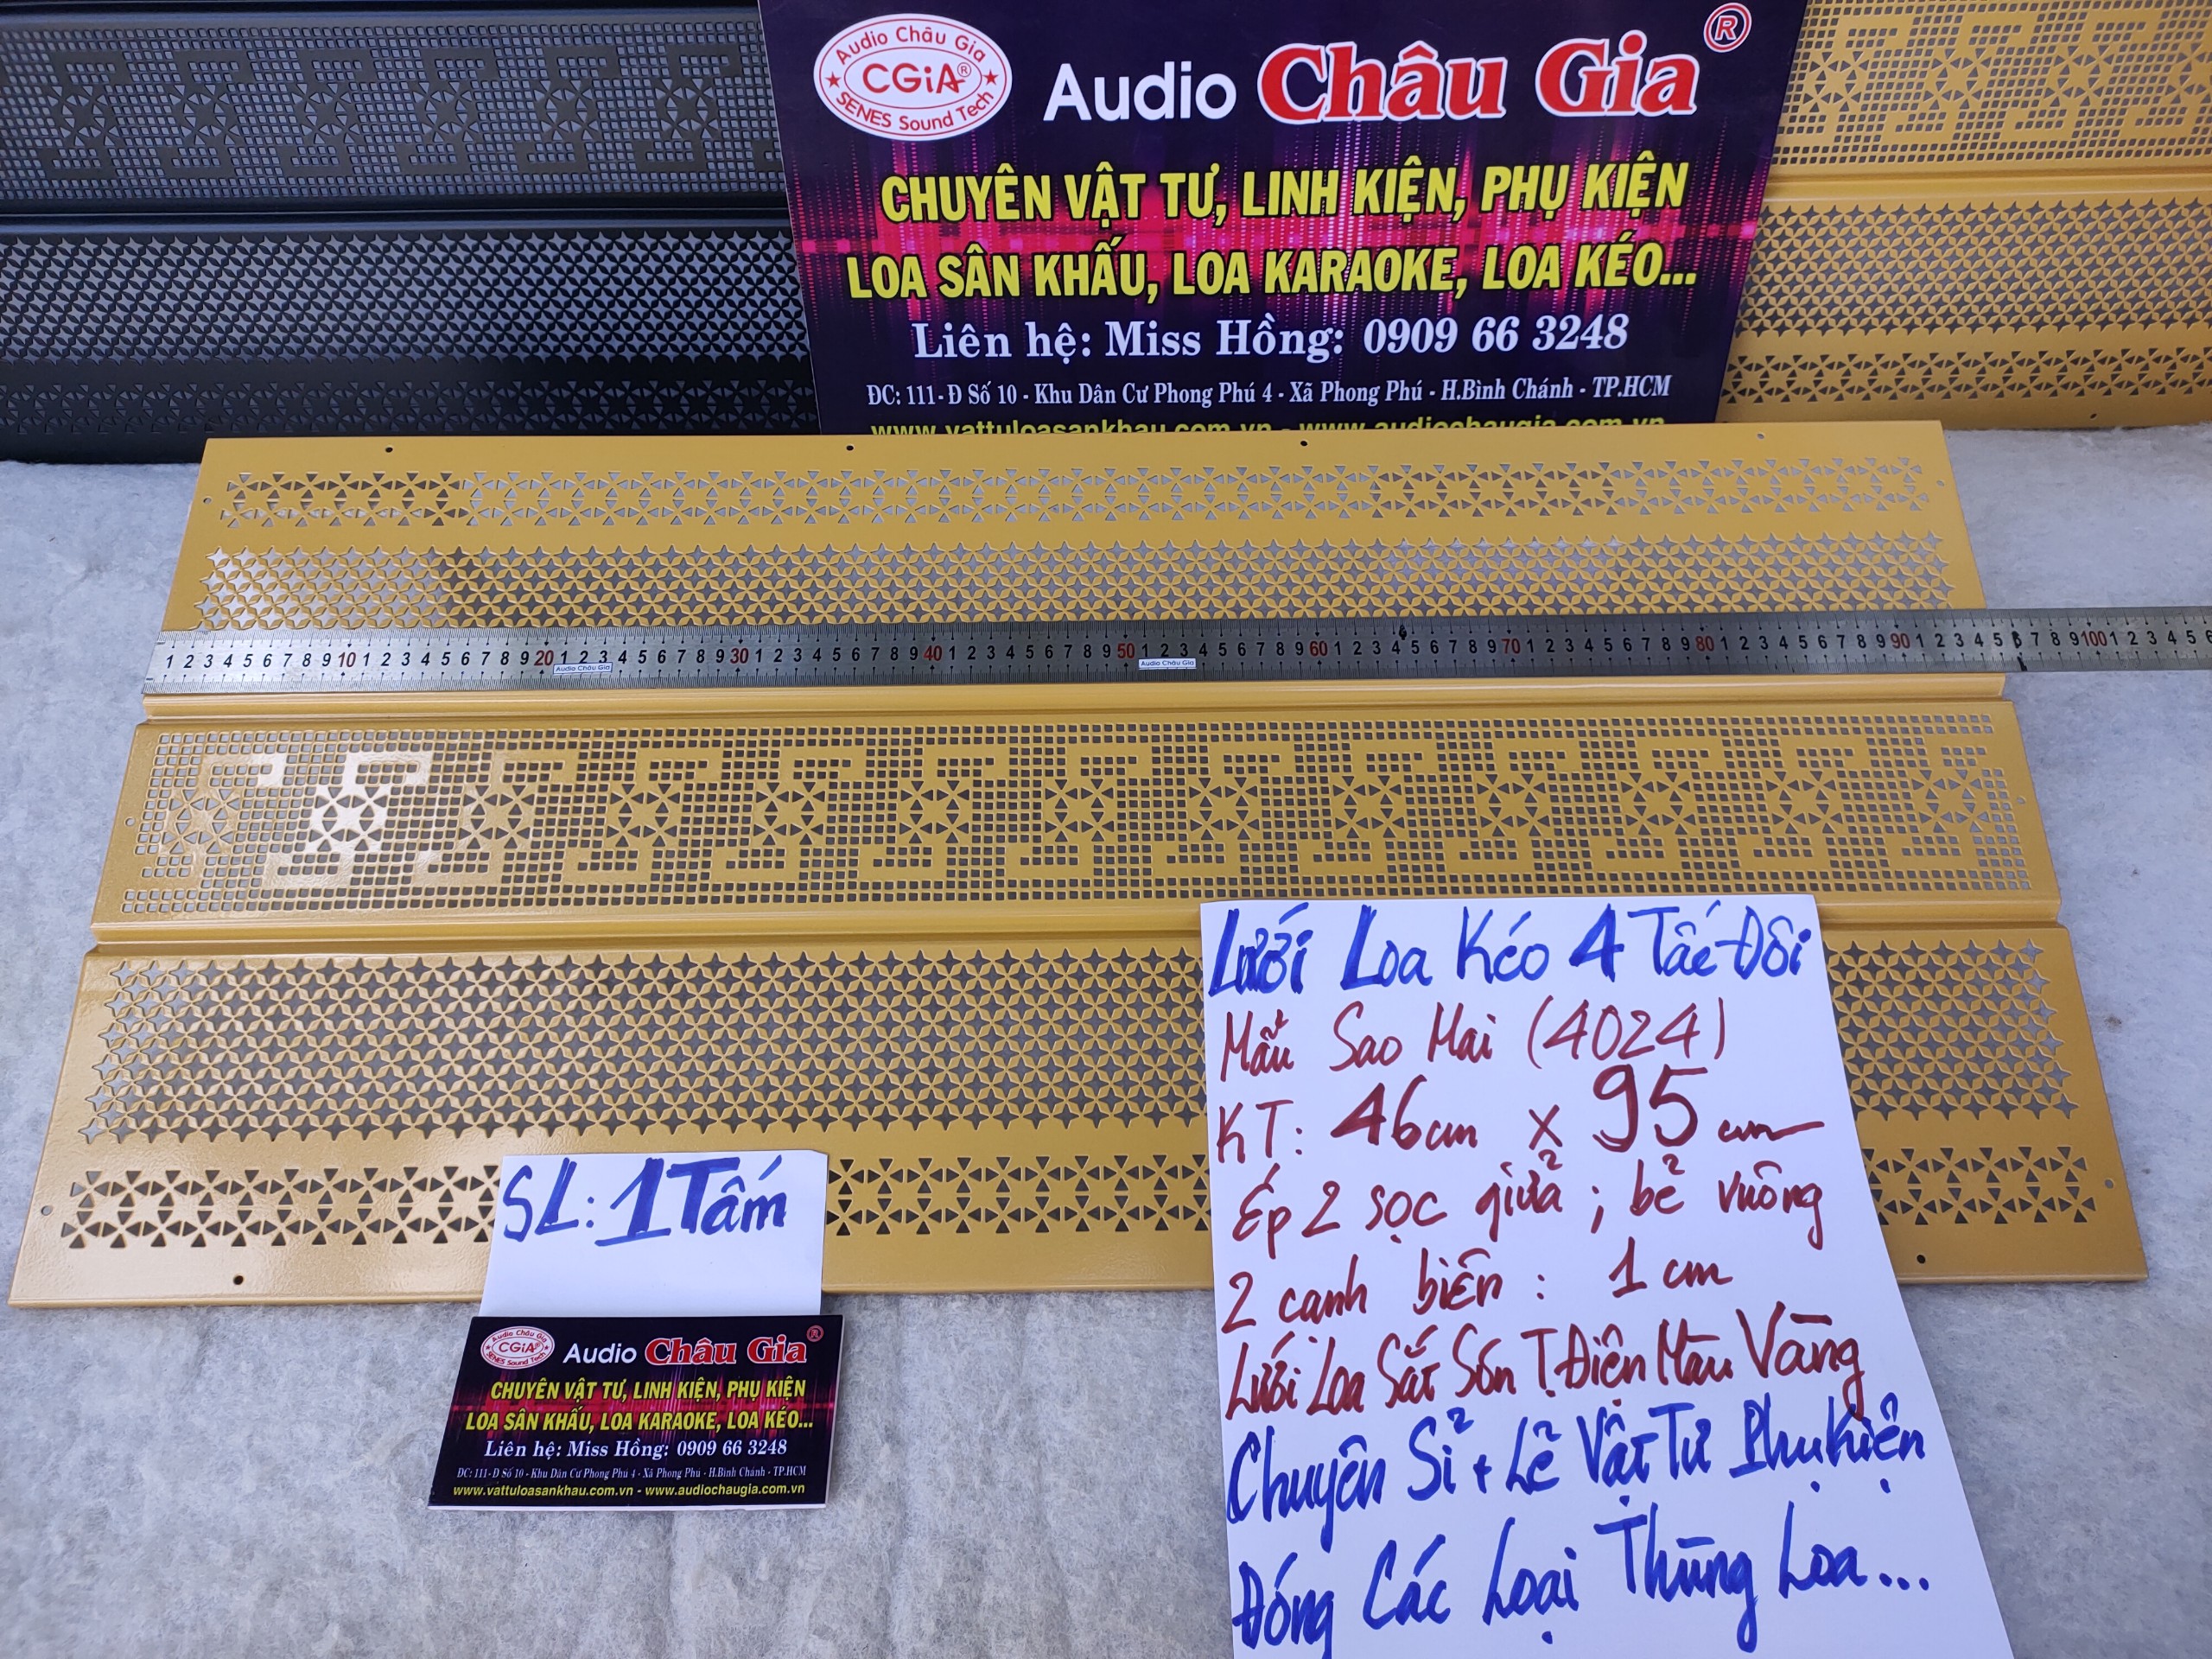 Audio Châu Gia
CGiA®
SENES Sound Tech
Audio Châu Gia ®
CHUYÊN VẬT TƯ, LINH KIỆN, PHỤ KIỆN
LOA SÂN KHẤU, LOA KARAOKE, LOA KÉO...
Liên hệ: Miss Hồng: 0909 66 3248
ĐC: 111- Đ Số 10 - Khu Dân Cư Phong Phú 4 - Xã Phong Phú - H.Bình Chánh - TP.HCM
www.vattuloasankhau.com.vn - www.audiochaugia.com.vn
1 2 3 4 5 6 7 8 9 10 1 2 3 4 5 6 7 8 9 20 1 2 3 4 5 6 7 8 9 30 1 2 3 4 5 6 7 8 9 40 1 2 3 4 5 6 7 8 9 50 1 2 3 4 5 6 7 8 9 60 1 2 3 4 5 6 7 8 9 70 1 2 3 4 5 6 7 8 9 80 1 2 3 4 5 6 7 8 9 90 1 2 3 4 5 6 7 8 9 100 1 2 3 4 5 6
Audio Châu Gia
Audio Châu Gia
Lưới Loa Kéo 4 Tấc Đôi
Mẫu Sao Mai (4024)
KT: 46cm x 95 cm
Ép 2 sọc giữa ; bẻ vuông
2 cạnh biên : 1 cm
Lưới Loa Sắt Sơn T.Điện Màu Vàng
Chuyên Sỉ + Lẽ Vật Tư Phụ Kiện
Đóng Các Loại Thùng Loa...
SL: 1 Tấm
Audio Châu Gia
CGiA®
SENES Sound Tech
Audio Châu Gia ®
CHUYÊN VẬT TƯ, LINH KIỆN, PHỤ KIỆN
LOA SÂN KHẤU, LOA KARAOKE, LOA KÉO...
Liên hệ: Miss Hồng: 0909 66 3248
ĐC: 111- Đ Số 10 - Khu Dân Cư Phong Phú 4 - Xã Phong Phú - H.Bình Chánh - TP.HCM
www.vattuloasankhau.com.vn - www.audiochaugia.com.vn